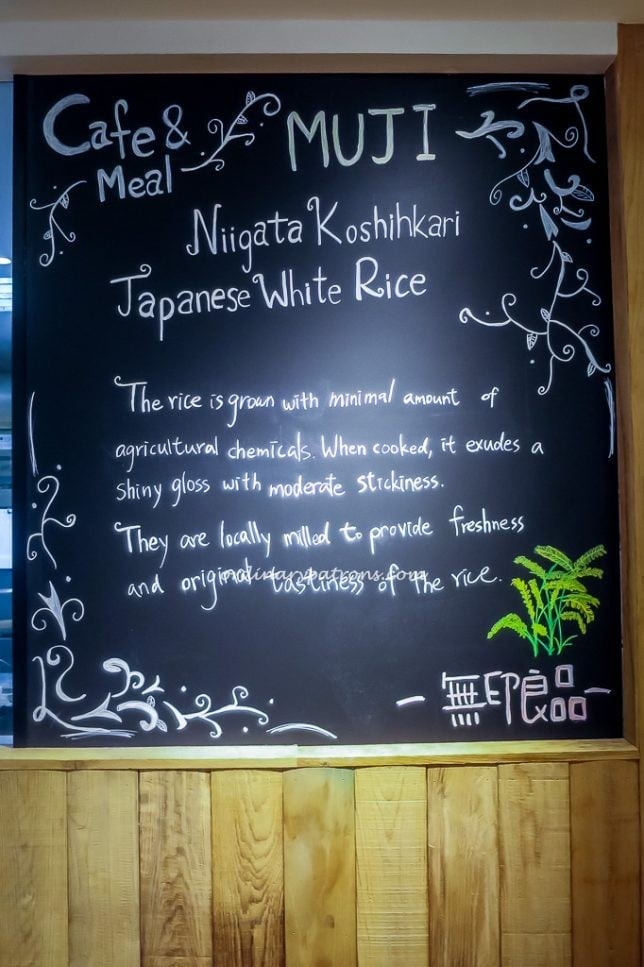 Cafe & MUJI
Meal
Niigata Koshihkari
Japanese White Rice
The rice is grown with minimal amount of
agricultural chemicals. When cooked, it exudes a
shiny gloss with moderate stickiness.
They are locally milled to provide freshness
and original tastiness of the rice.
無印良品